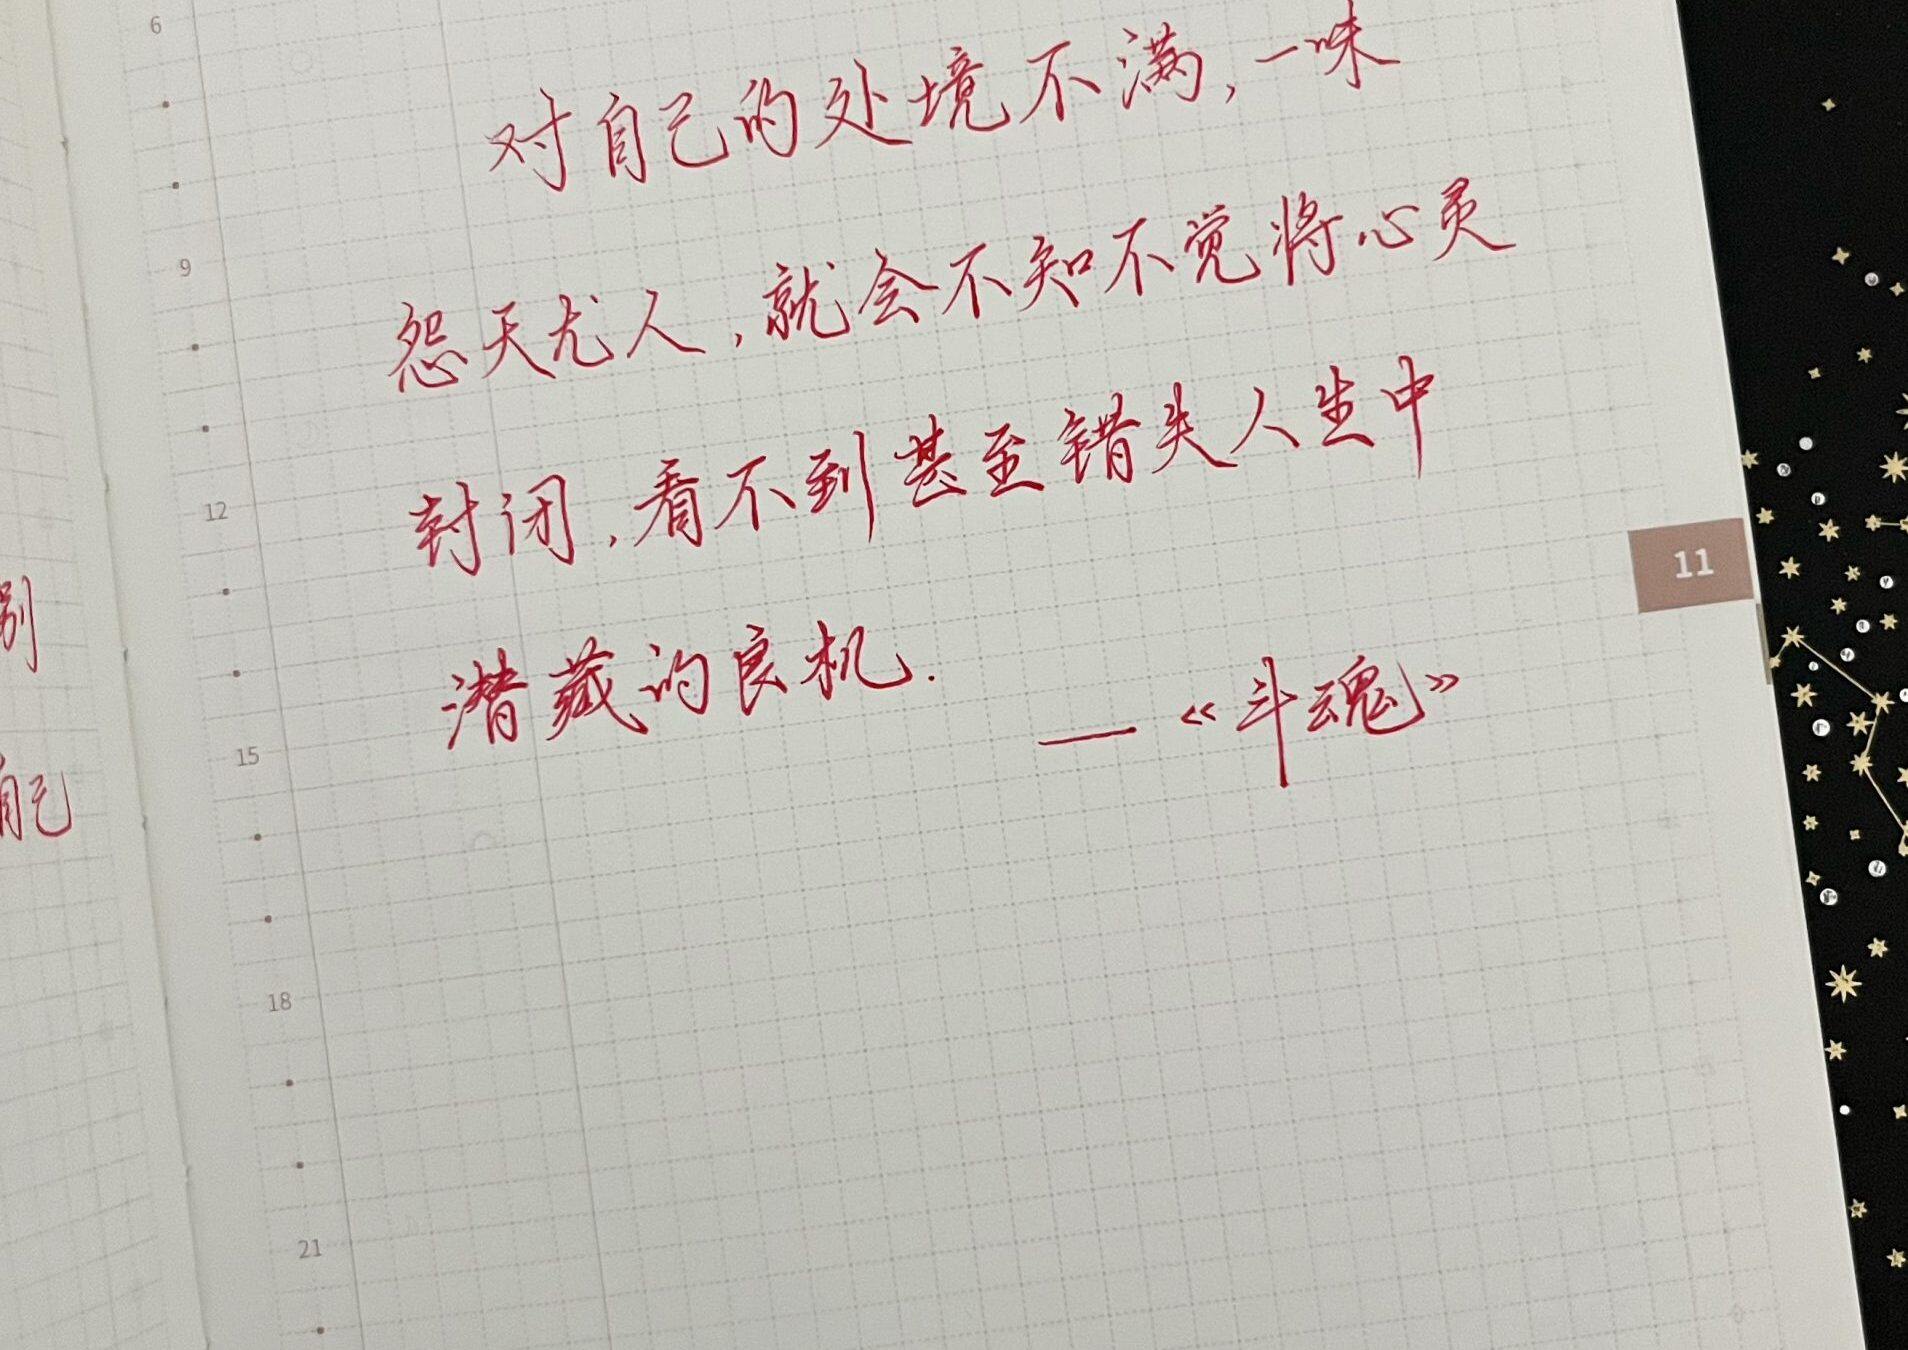 6
9
12
15
18
21
对自己的处境不满,一味
怨天尤人,就会不知不觉将心灵
封闭,看不到甚至错失人生中
潜藏的良机.
——《斗魂》
11
别
自己